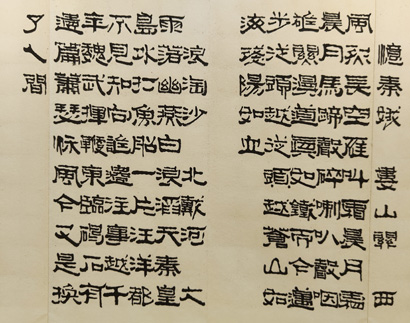 憶秦娥 婁山關 西
風烈長空雁叫霜晨月霜
晨月馬蹄聲碎喇叭聲咽
雄關漫道真如鐵而今邁
步從頭越從頭越蒼山如
海殘陽如血
浪淘沙 北戴河 大
雨落幽燕白浪滔天秦皇
島外打魚船一片汪洋都
不見知向誰邊往事越千
年魏武揮鞭東臨碣石有
遺篇蕭瑟秋風今又是換
了人間